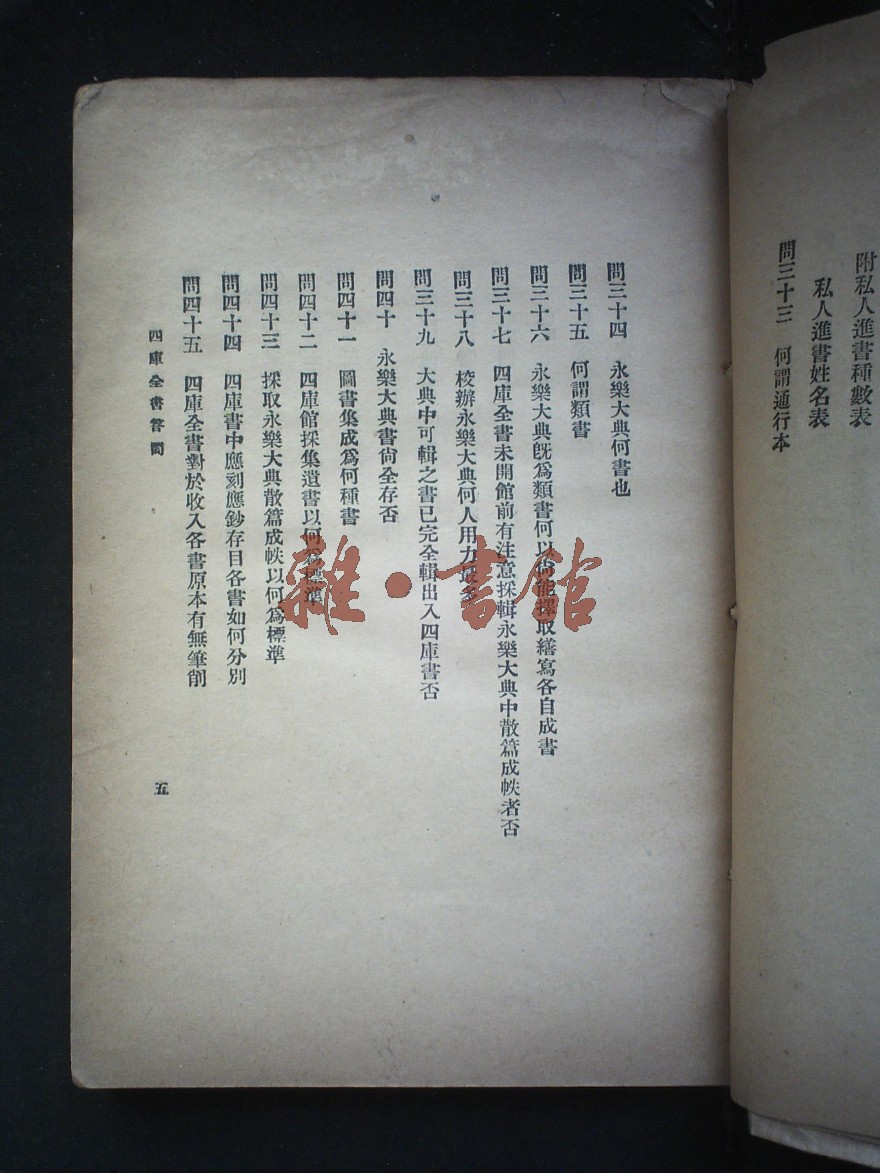 附私人進書種數表
私人進書姓名表
問三十三 何謂通行本
問三十四 永樂大典何書也
問三十五 何謂類書
問三十六 永樂大典既爲類書何以尙能擇取繕寫各自成書
問三十七 四庫全書未開館前有注意採輯永樂大典中散篇成帙者否
問三十八 校辦永樂大典何人用力最多
問三十九 大典中可輯之書已完全輯出入四庫書否
問四十 永樂大典書尙全存否
問四十一 圖書集成爲何種書
問四十二 四庫館採集遺書以何爲標準
問四十三 採取永樂大典散篇成帙以何爲標準
問四十四 四庫書中應刻應鈔存目各書如何分別
問四十五 四庫全書對於收入各書原本有無筆削
四庫全書答問
五
雜·書館